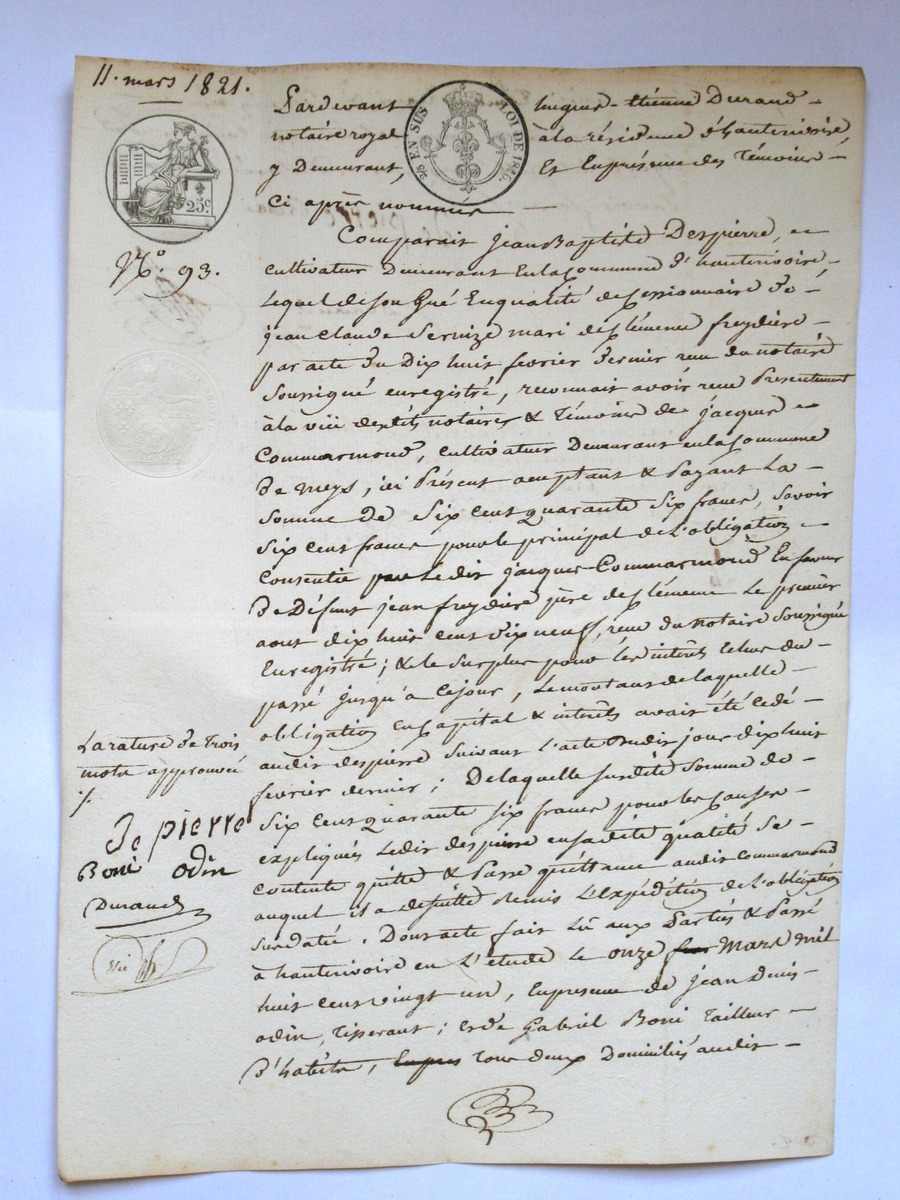 11. mars 1821.
Pardevant hugues-étienne Durand -
notaire royal à la résidence d'hauterivoire,
y Demeurant, Et En présence des Témoins -
Ci après nommés -
EN SUS
LOI DE 1816.
25c.
N.° 93.
Comparait Jean Baptiste Despierre,
cultivateur Demeurant En la Commune d'hauterivoire,
Lequel de son Gré En qualité de Cessionnaire de
jean Claude Servize mari de Clémence freydière -
par acte du Dix huit fevrier dernier reçu du notaire
Soussigné enregistré, reconnait avoir reçu Présentement
à la vüe desdits notaires & Témoins de jacques
Commarmond, cultivateur Demeurant en la Commune
De meys, ici Présent acceptant & Payant La -
Somme de Six Cent quarante Six francs, Savoir
Six cent francs pour le principal de L'obligation
Consentie par Ledit jacques Commarmond En faveur
De Défunt jean freydière père de Clémence Le premier
aout dix huit cent dix neuf, reçu du notaire Soussigné
Enregistré ; & le Surplus pour les intérêts Echus du
passé jusqu'à Cejour, Le montant de laquelle -
obligation En Capital & intérêts avait été Cédé -
audit despierre Suivant L'acte Sudit jour dix huit
février dernier ; De laquelle Susdite Somme de -
Six Cent quarante Six francs pour les Causes -
expliquées Ledit despierre en sadite qualité Se -
Contente quitte & Passe quittance audit Commarmond
auquel il a de suitte Remis L'Expédition de L'obligation
Susdatée. Dont acte fait Lû aux Parties & Passé
à hauterivoire en L'étude Le onze Mars mil
huit cent vingt un, En présence de jean Denis
odin, Tisserant ; Et de Gabriel Boni Tailleur -
D'habits, Tous deux Domiciliés audit -
La rature de Trois
mots approuvée
De pierre
Boni odin
Durand